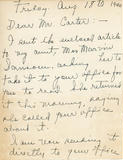 Friday. Aug 18 1944
Dear Mr. Carter:—
I sent the inclosed article
to my aunt, Mrs Marvin
Davison, asking her to
take it to your office for
you to read. She returned
it this morning, saying
she called your office
about it.
I am now sending it
directly to your office